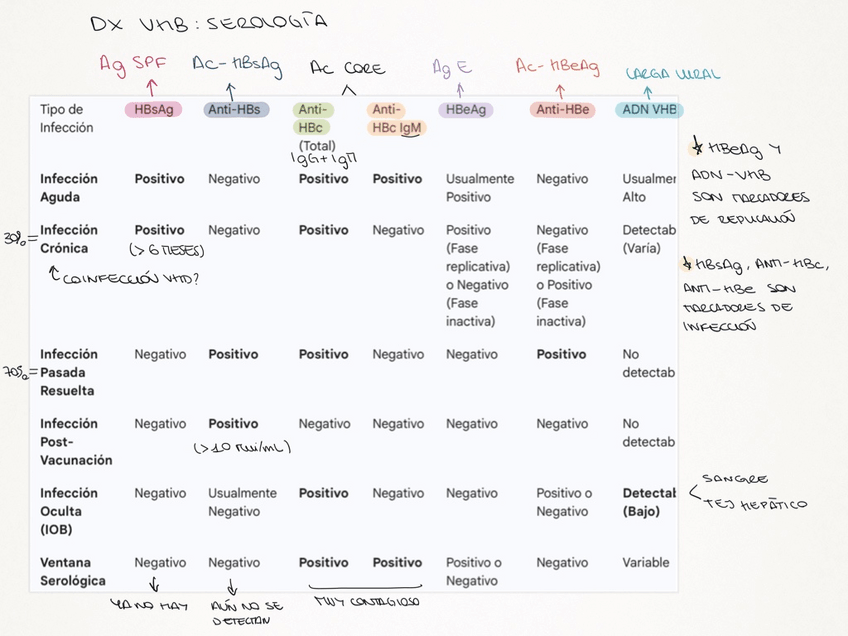 DX VHB: SEROLOGÍA
Ag SPF Ac-HBsAg Ac CORE Ag E Ac-HBeAg CARGA VIRAL
Tipo de Infección HBsAg Anti-HBs Anti-HBc (Total) Anti-HBc IgM HBeAg Anti-HBe ADN VHB
IgG+IgM
Infección Aguda Positivo Negativo Positivo Positivo Usualmente Positivo Negativo Usualmer Alto
30%= Infección Crónica Positivo Negativo Positivo Negativo Positivo (Fase replicativa) o Negativo (Fase inactiva) Negativo (Fase replicativa) o Positivo (Fase inactiva) Detectab (Varía)
(>6 MESES)
COINFECCIÓN VHD?
70%= Infección Pasada Resuelta Negativo Positivo Positivo Negativo Negativo Positivo No detectab
Infección Post-Vacunación Negativo Positivo Negativo Negativo Negativo Negativo No detectab
(>10 mUI/mL)
Infección Oculta (IOB) Negativo Usualmente Negativo Positivo Negativo Negativo Positivo o Negativo Detectal (Bajo)
SANGRE
TEJ HEPÁTICO
Ventana Serológica Negativo Negativo Positivo Positivo Positivo o Negativo Negativo Variable
YA NO HAY
AÚN NO SE
DETECTAN
MUY CONTAGIOSO
HBeAg Y
ADN-VHB
SON MARCADORES
DE REPLICACIÓN
HBsAg, ANTI-HBc,
ANTI-HBe SON
MARCADORES DE
INFECCIÓN